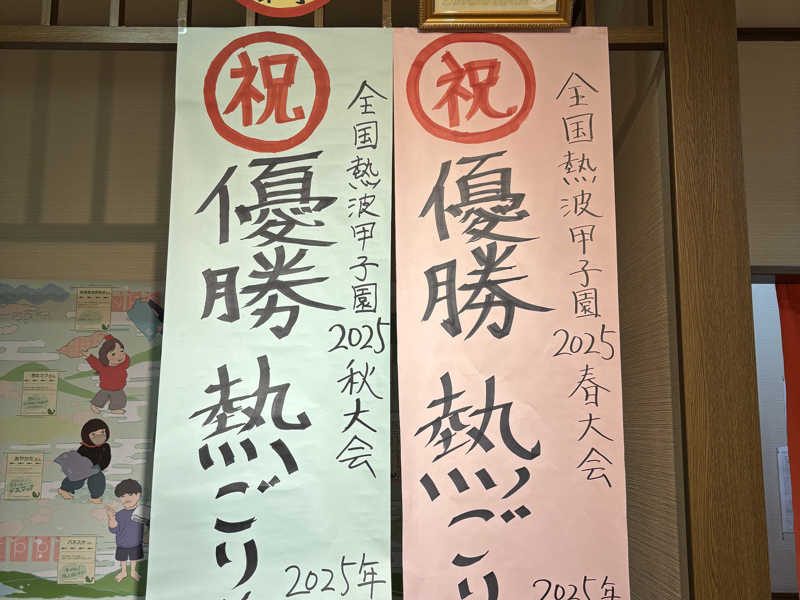 祝
全国熱波甲子園2025春大会
優勝 熱ごり
2025年
祝
全国熱波甲子園2025秋大会
優勝 熱ごり
2025年